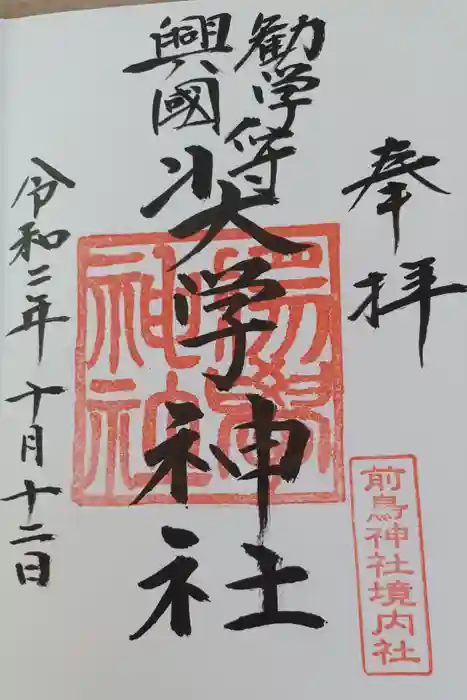 奉拝
前鳥神社境内社
勧学守
興國
奨学神社
令和二年十月十二日